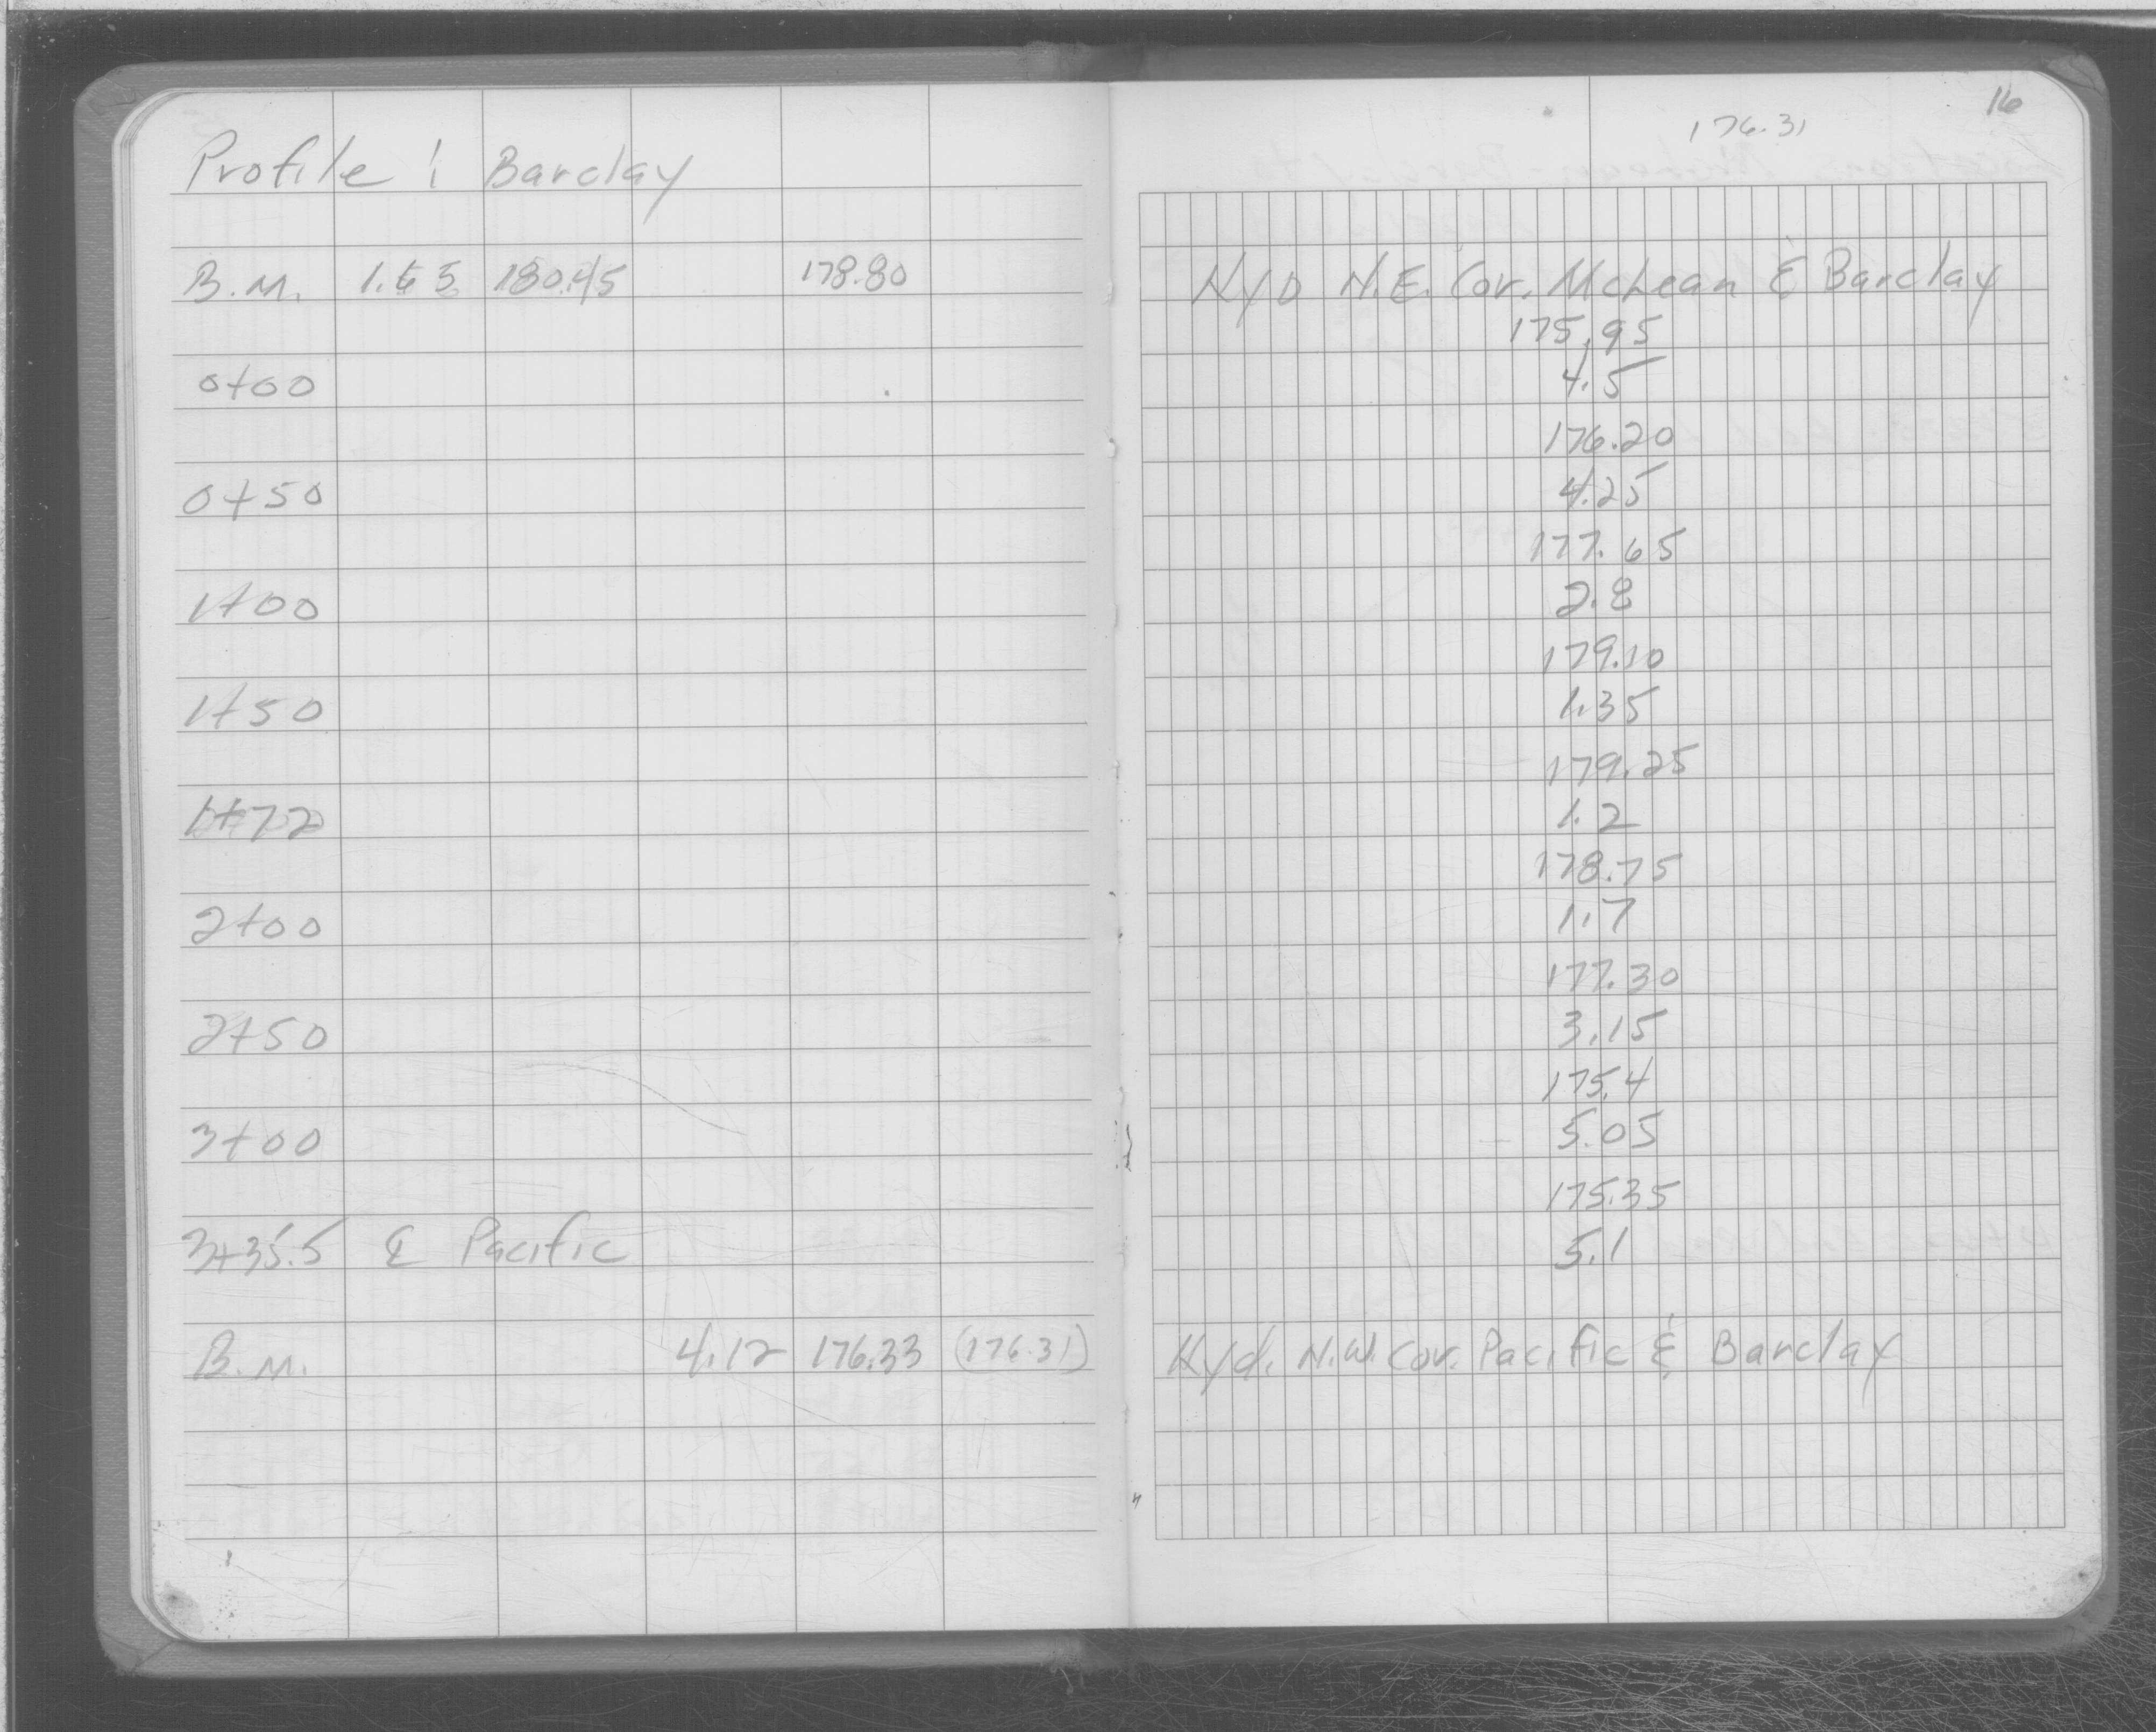 Profile : Barclay
B.M. 1.65 180.45 178.80
0+00
0+50
1+00
1+50
1+72
2+00
2+50
3+00
3+35.5 ℄ Pacific
B.M. 4.12 176.33 (176.31)
16
176.31
Hyd N.E. Cor. McLean & Barclay
175.95
4.5
176.20
4.25
177.65
2.8
179.10
1.35
179.25
1.2
178.75
1.7
177.30
3.15
175.4
5.05
175.35
5.1
Hyd. N.W. Cor. Pacific & Barclay